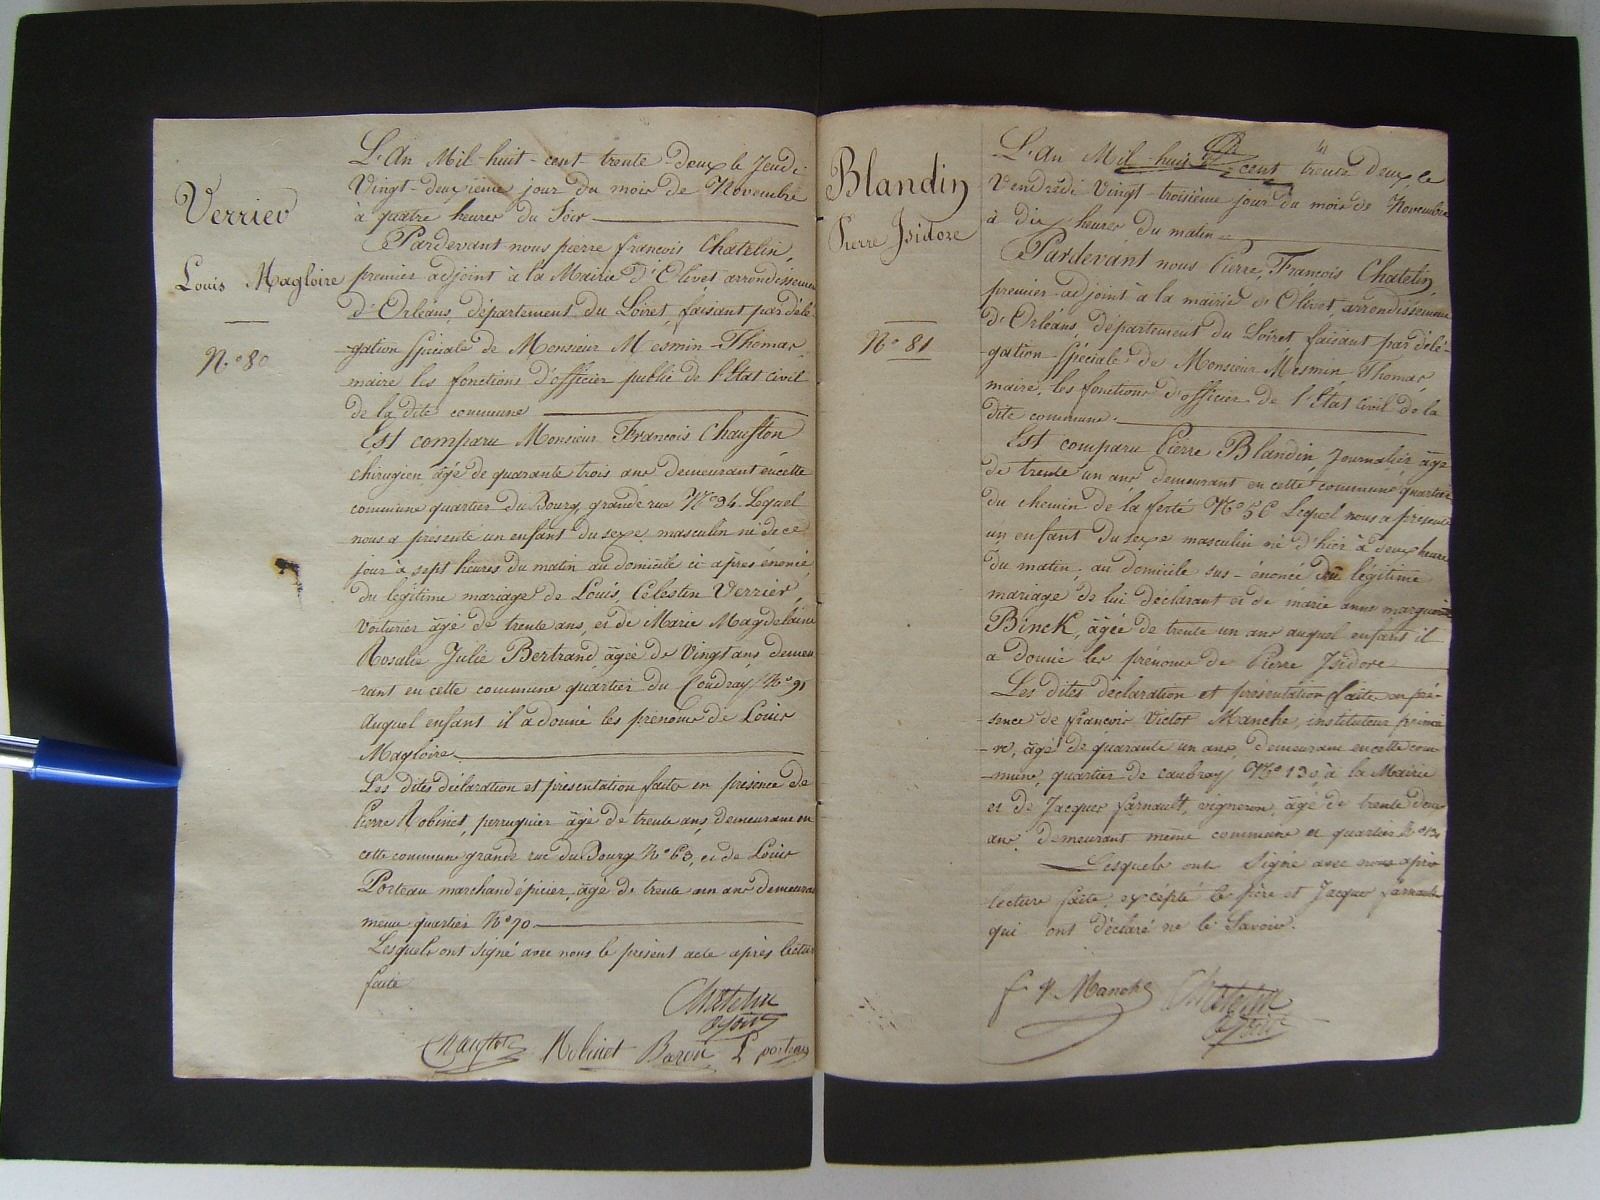 Verrier
Louis Magloire
N.o 80
L'An Mil-huit-cent trente-deux le Jeudi
Vingt-deuxième jour du mois de Novembre
à quatre heures du Soir
Pardevant-nous pierre françois Chatelin,
premier adjoint à la Mairie d'Olivet arrondissemen
d'Orléans, département du Loiret, faisant par délé-
gation Spéciale de Monsieur Mesmin-Thomas,
maire les fonctions d'officier public de l'Etat civil
de la dite commune
Est comparu Monsieur François Chaufton
chirugien, âgé de quarante trois ans demeurant en cette
commune quartier du Bourg, grande rue N.o 94. Lequel
nous a présenté un enfant du sexe masculin né de ce
jour à sept heures du matin au domicile ci après énoncé,
du légitime mariage de Louis, Célestin Verrier,
voiturier âgé de trente ans, et de Marie Magdeleine
Rosalie Julie Bertrand, âgée de Vingt ans, demeu
rant en cette commune quartier du Coudray, N.o 91
Auquel enfant il a donné les prénoms de Louis
Magloire.
Les dites déclaration et présentation faite en présence de
Pierre Robinet, perruquier âgé de trente ans, demeurant en
cette commune grande rue du Bourg N.o 63, et de Louis
Porteau marchand épicier, âgé de trente un ans demeuran
même quartier N.o 70.
Lesquels ont signé avec nous le présent acte après lectur
faite
Chatelin
adjoint
Chaufton Robinet Baron L porteau
Blandin
Pierre Isidore
N.o 81
L'An Mil-huit-cent trente deux, le
Vendredi Vingt-troisième jour du mois de Novembre
à dix heures du matin
Pardevant nous Pierre, François Chatelin,
premier-adjoint à la mairie d'Olivet, arrondissemen
d'Orléans, département du Loiret faisant par délé-
gation-Spéciale de Monsieur Mesmin, Thomas,
maire, les fonctions d'officier de l'Etat Civil de la
dite commune.
Est comparu Pierre Blandin, Journalier, âgé
de trente un ans demeurant en cette commune quartier
du chemin de la ferté N.o 56 Lequel nous a présenté
un enfant du sexe masculin né d'hier à deux heures
du matin, au domicile sus-énoncé du légitime
mariage de lui déclarant et de marie anne marguerite
Binck, âgée de trente un ans auquel enfant il
a donné les prénoms de Pierre Isidore
Les dites déclaration et présentation faite en pré-
sence de françois Victor Manche, instituteur primai
-re, âgé de quarante un ans, demeurant en cette com
-mune, quartier de caubray N.o 130 à la Mairie
et de Jacques farnault, vigneron, âgé de trente deux
ans demeurant même commune et quartier
Lesquels ont Signé avec nous après
lecture faite, excépté le père et Jacques farnault
qui ont déclaré ne le Savoir.
f V Manche Chatelin
adjoint